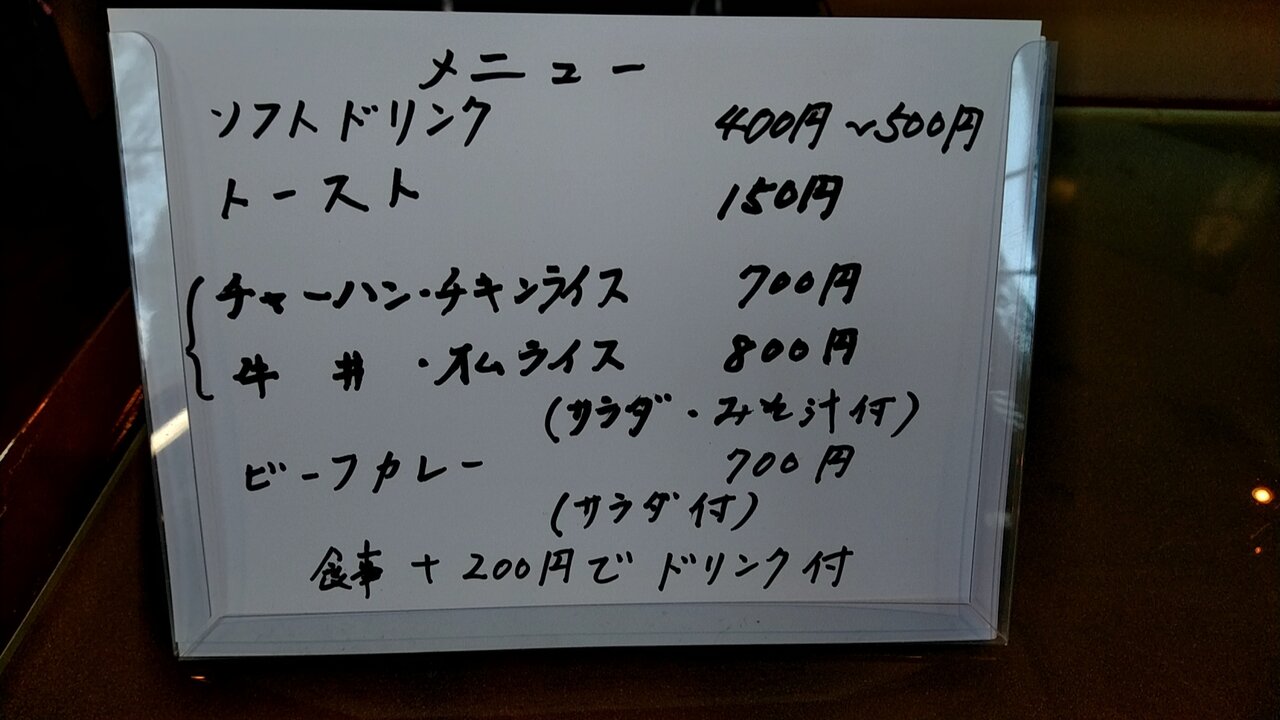 メニュー
ソフトドリンク 400円~500円
トースト 150円
チャーハン・チキンライス 700円
牛丼・オムライス 800円
(サラダ・みそ汁付)
ビーフカレー 700円
(サラダ付)
食事+200円でドリンク付